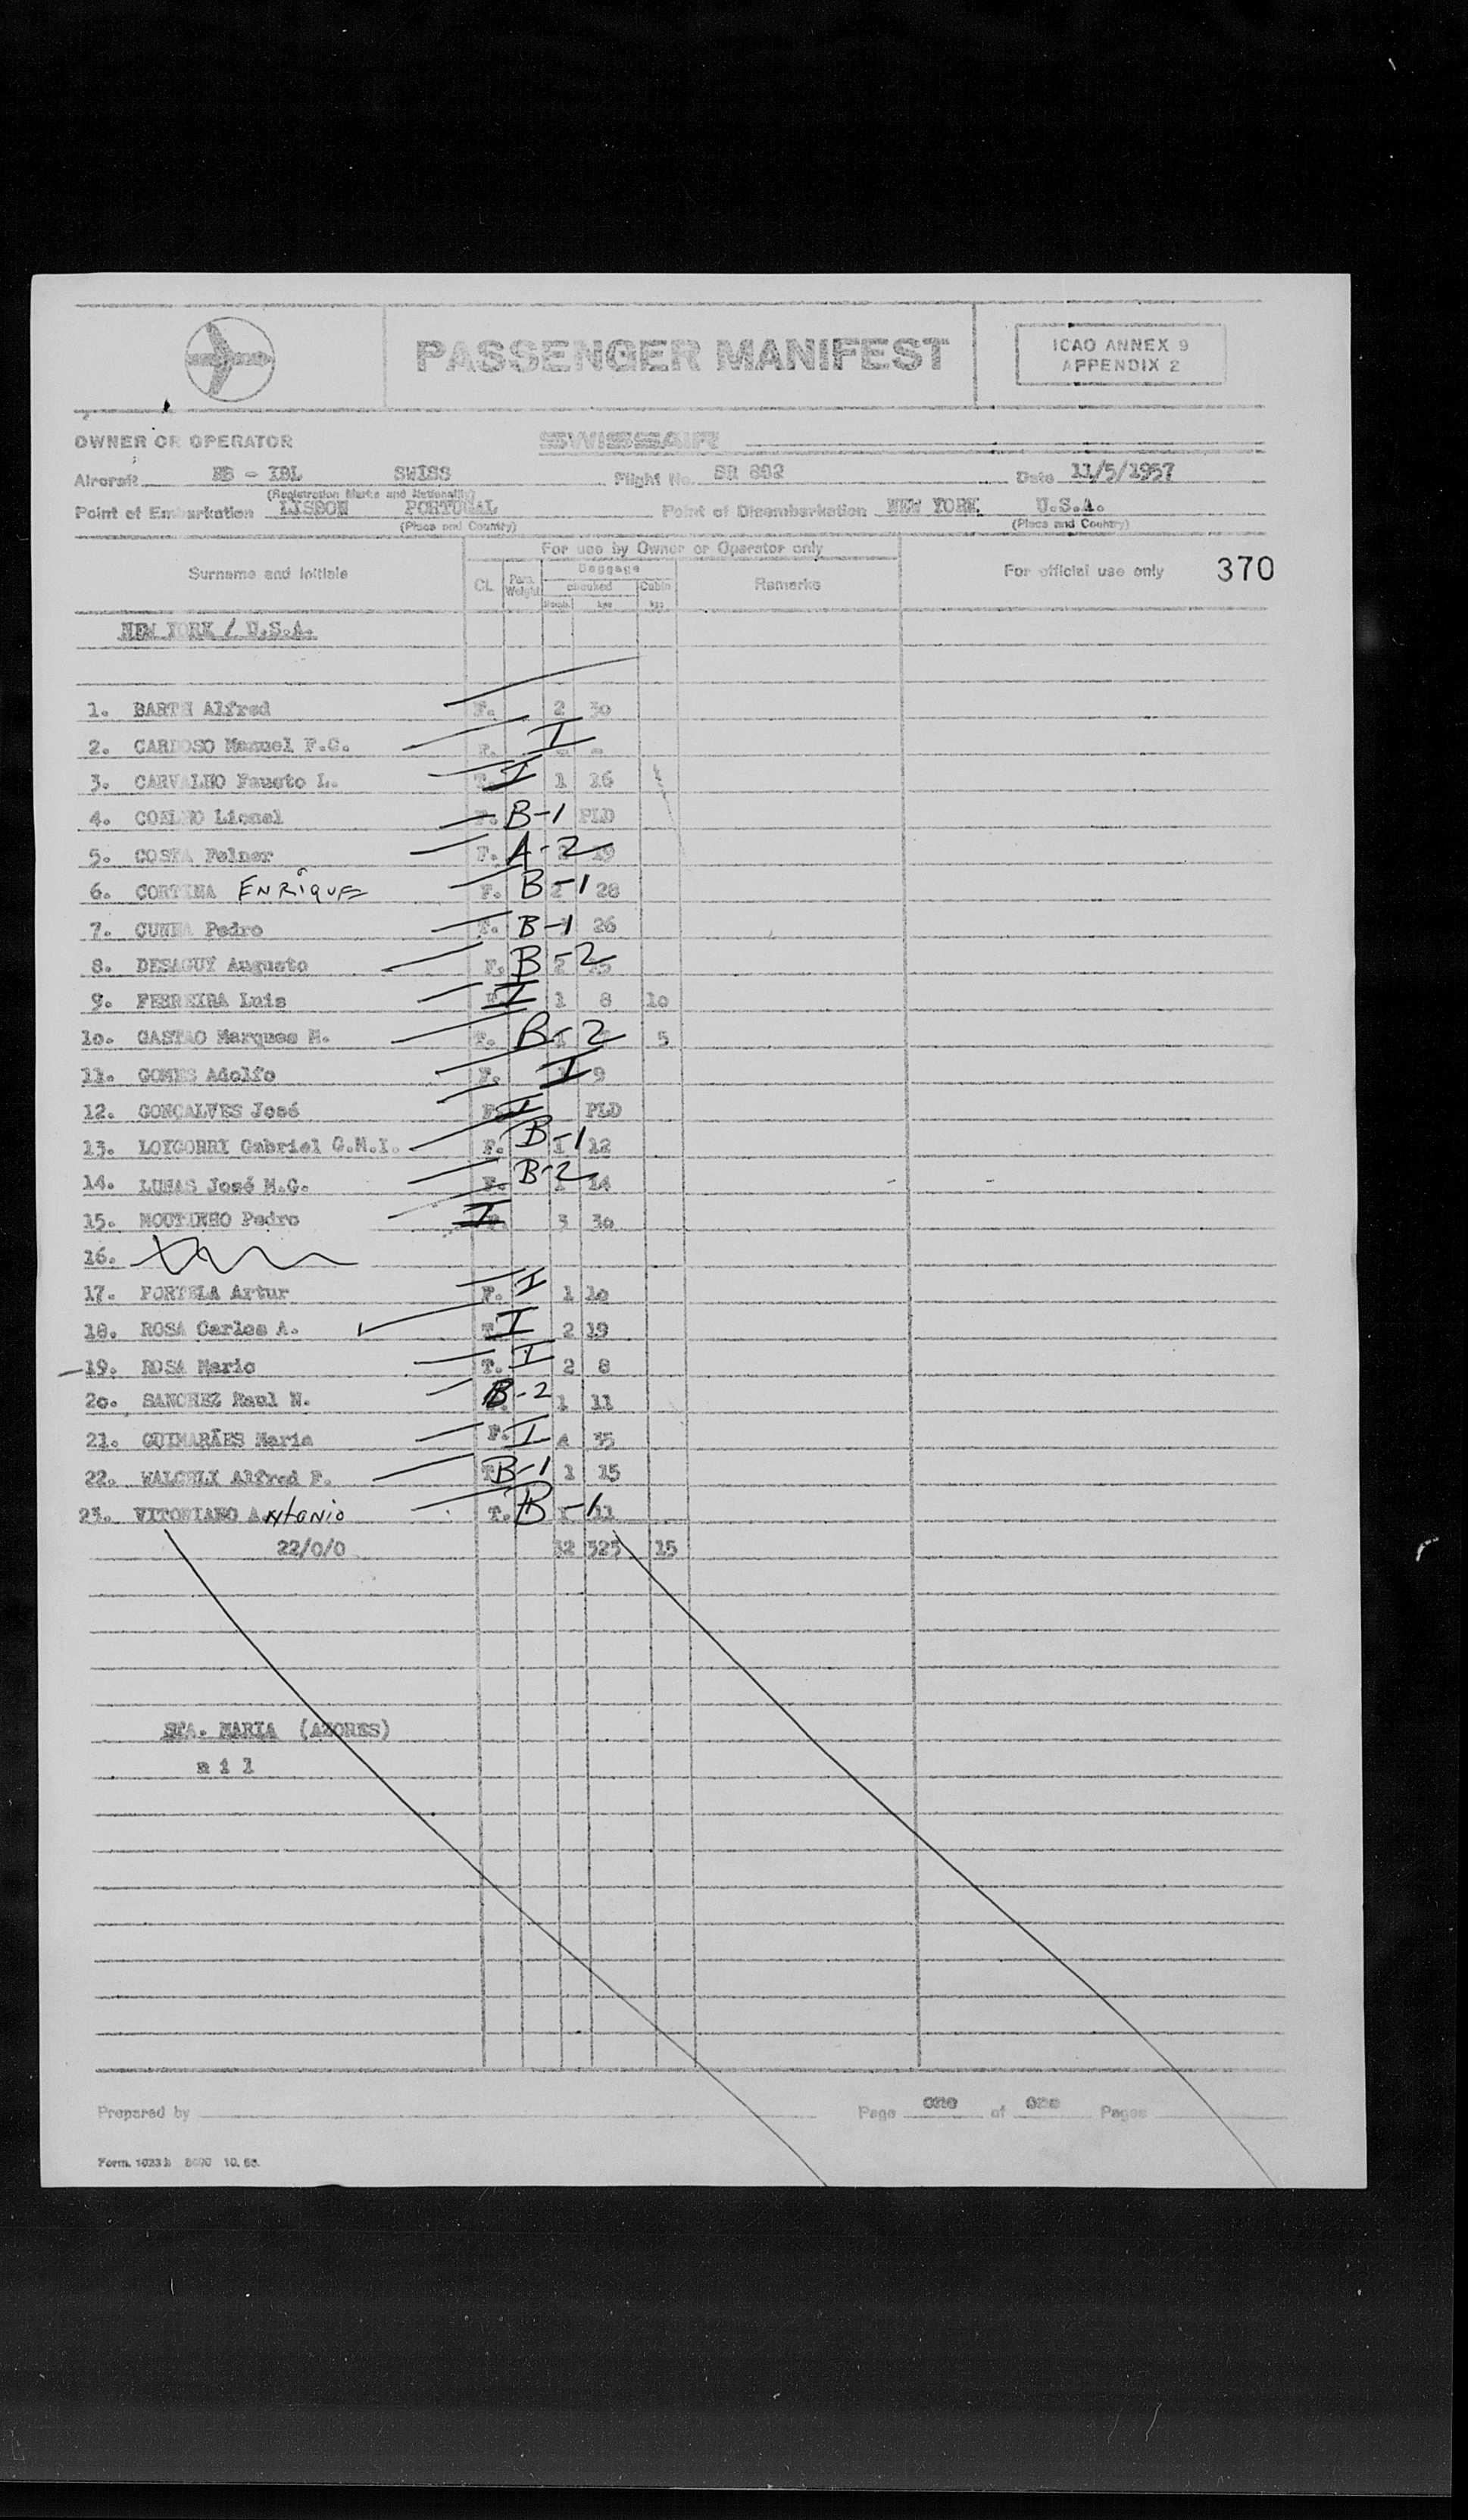 PASSENGER MANIFEST
ICAO ANNEX 9
APPENDIX 2
OWNER OR OPERATOR SWISSAIR
Aircraft HB - IBL SWISS Flight No. SR 892 Date 11/5/1957
(Registration Marks and Nationality)
Point of Embarkation LISBON PORTUGAL Point of Disembarkation NEW YORK U.S.A.
(Place and Country) (Place and Country)
For use by Owner or Operator only
Surname and initials CL. Pass. Weight Baggage Remarks For official use only 370
checked Cabin
kgs kgs
NEW YORK / U.S.A.
1. BARTH Alfred F. 2 30
2. CARDOSO Manuel F.C. F. I - -
3. CARVALHO Fausto L. T. I 1 16
4. COELHO Lionel B-1 PLD
5. COSTA Felner F. A-2 19
6. CORTINA ENRIQUE F. B-1 2 28
7. CUNHA Pedro T. B-1 26
8. DESAGUY Augusto F. B-2 2
9. FERREIRA Luis I 1 8 10
10. GASTAO Marques M. T. B-2 5
11. GOMES Adolfo F. I 9
12. GONÇALVES José F. I PLD
13. LOYGORRI Gabriel G.M.I. F. B-1 1 12
14. LUNAS José M.G. F. B-2 14
15. MOUTINHO Pedro I 3 30
16.
17. PORTELA Artur F. I 1 10
18. ROSA Carlos A. T. I 2 19
19. ROSA Mario T. I 2 8
20. SANCHEZ Raul N. B-2 1 11
21. GUIMARÃES Maria F. I 35
22. WALCHLI Alfred F. T B-1 1 15
23. VITORIANO Antonio T. B-1 1 11
22/0/0 32 323 15
STA. MARIA (AZORES)
n i l
Prepared by Page one of one Pages
Form. 1023 h 10.